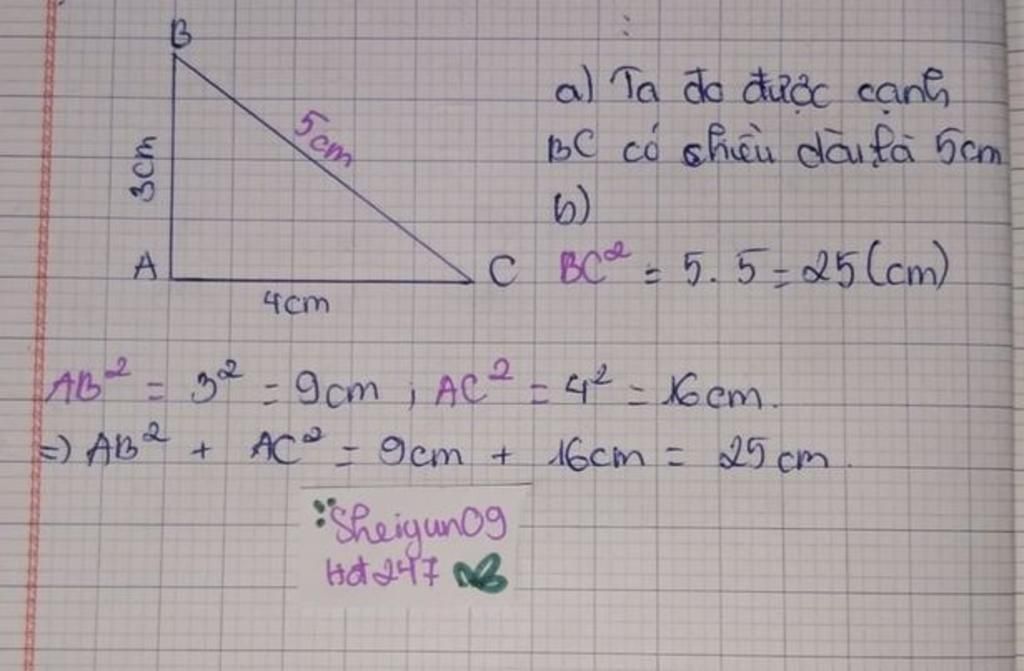 B
5cm
3cm
A
C
4cm
a) Ta đo được cạnh
BC có chiều dài là 5cm
b)
BC² = 5. 5 = 25 (cm)
AB² = 3² = 9cm ; AC² = 4² = 16cm.
=) AB² + AC² = 9cm + 16cm = 25cm.
Sheiyun09
Hd247